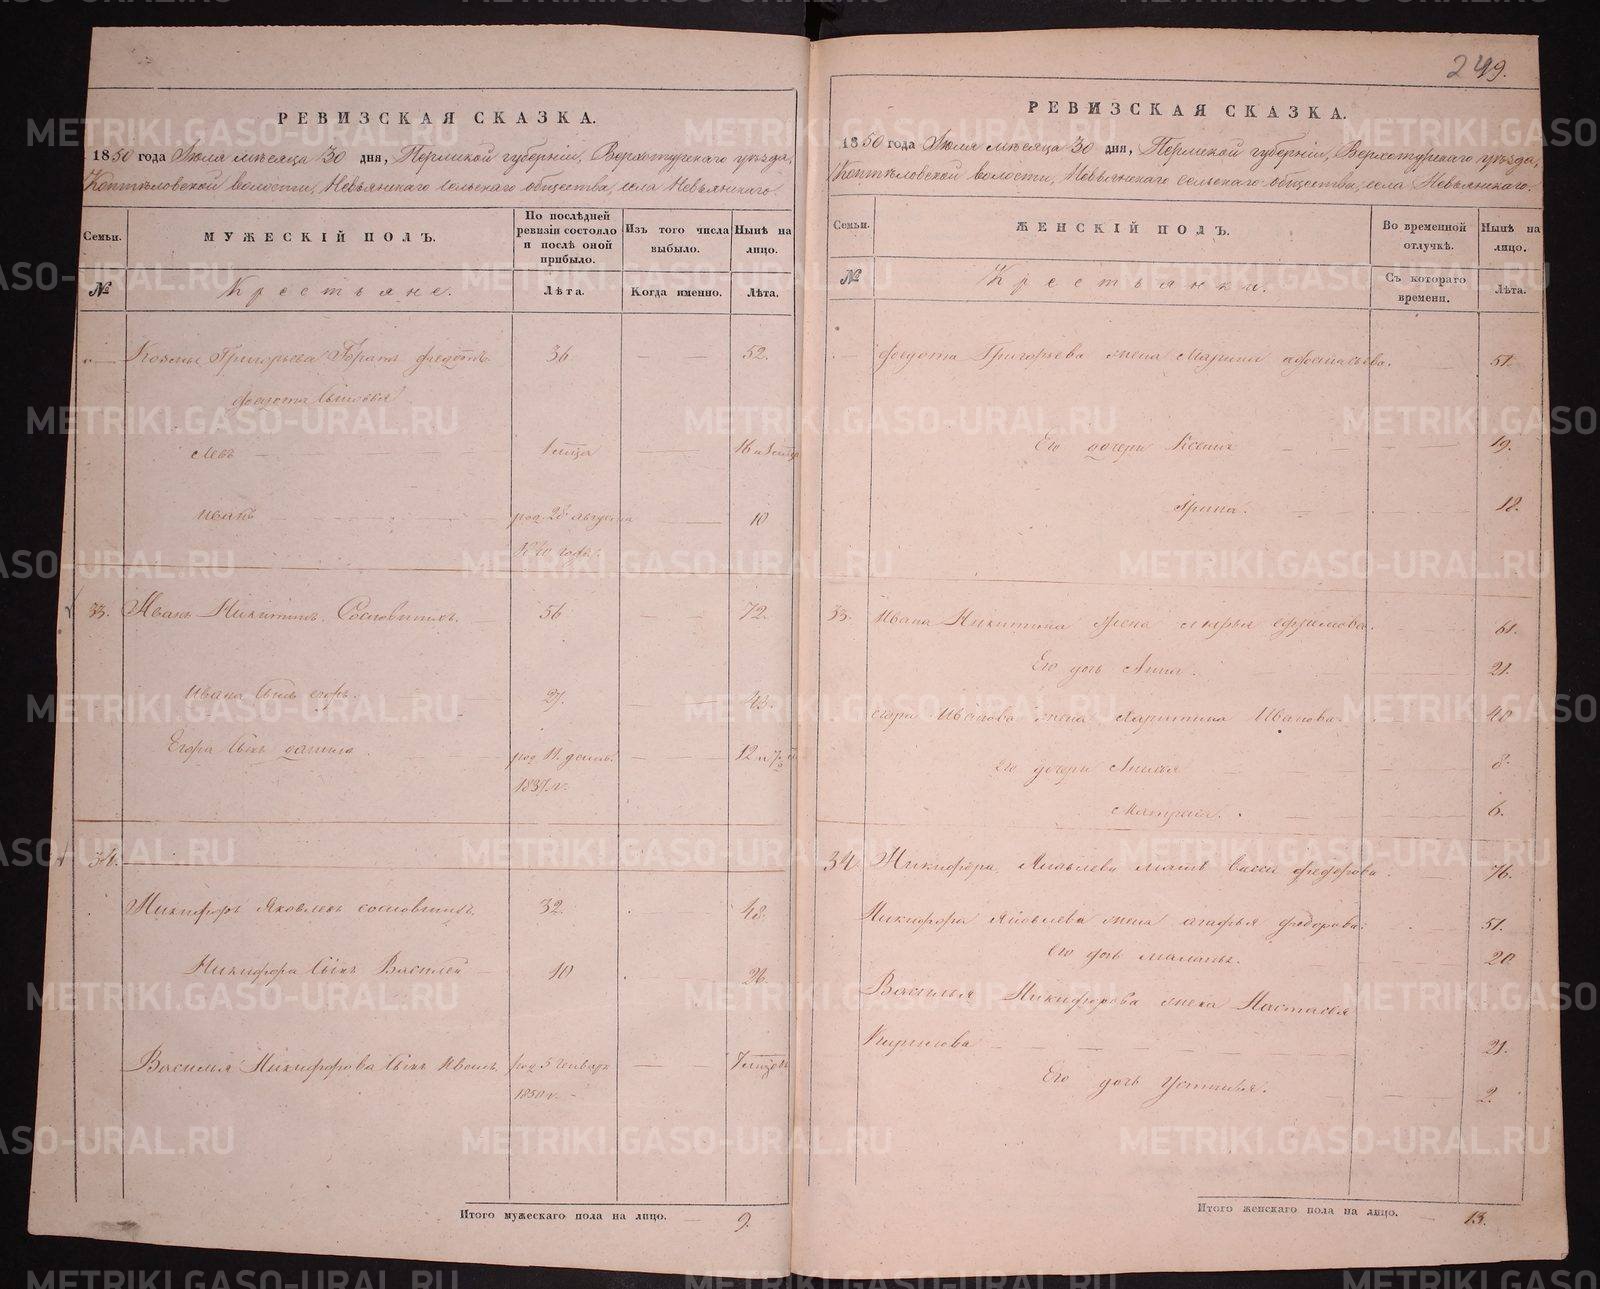 249.
РЕВИЗСКАЯ СКАЗКА.
1850 года Июля мѣсяца 30 дня, Пермской губерніи, Верхотурскаго уѣзда,
Коптѣловской волости, Невьянскаго сельскаго общества, села Невьянскаго.
Семьи.
МУЖЕСКІЙ ПОЛЪ.
По послѣдней ревизіи состояло и послѣ оной прибыло.
Изъ того числа выбыло.
Нынѣ на лицо.
№
Крестьяне.
Лѣта.
Когда именно.
Лѣта.
Козмы Григорьева братъ Федотъ 36 52.
Федота сыновья
Левъ 1 мѣсяца
Иванъ род. 28 августа 10
1840 года.
33. Иванъ Никитинъ Сосновскихъ. 56 72.
Ивана сынъ Егоръ. 27. 43.
Егора сынъ Данило род. 11 декаб. 12
1837 г.
34.
Никифоръ Яковлевъ Сосновскихъ. 32. 48.
Никифора сынъ Василей 10 26.
Василья Никифорова сынъ Иванъ. род. 5 Генваря 7 мѣсяцовъ
1850 г.
Итого мужескаго пола на лицо. 9.
РЕВИЗСКАЯ СКАЗКА.
1850 года Июля мѣсяца 30 дня, Пермской губерніи, Верхотурскаго уѣзда,
Коптѣловской волости, Невьянскаго сельскаго общества, села Невьянскаго.
Семьи.
ЖЕНСКІЙ ПОЛЪ.
Во временной отлучкѣ.
Нынѣ на лицо.
№
Крестьянки.
Съ котораго времени.
Лѣта.
Федота Григорьева жена Марина 51.
Его дочери Ксения 19.
Ирина. 12.
33. Ивана Никитина жена Ефимова. 61.
Его дочь Анна. 21.
Егора Иванова жена Харитина Иванова 48
Его дочери 8
Матрена. 6.
34. Никифора Яковлева мать Васса Федорова 76.
Никифора Яковлева жена Агафья Федорова: 51.
Его дочь Маланья. 20.
Василья Никифорова жена Настасья
Кирилова 21.
Его дочь Устинья. 2.
Итого женскаго пола на лицо. 13.
METRIKI.GASO-URAL.RU